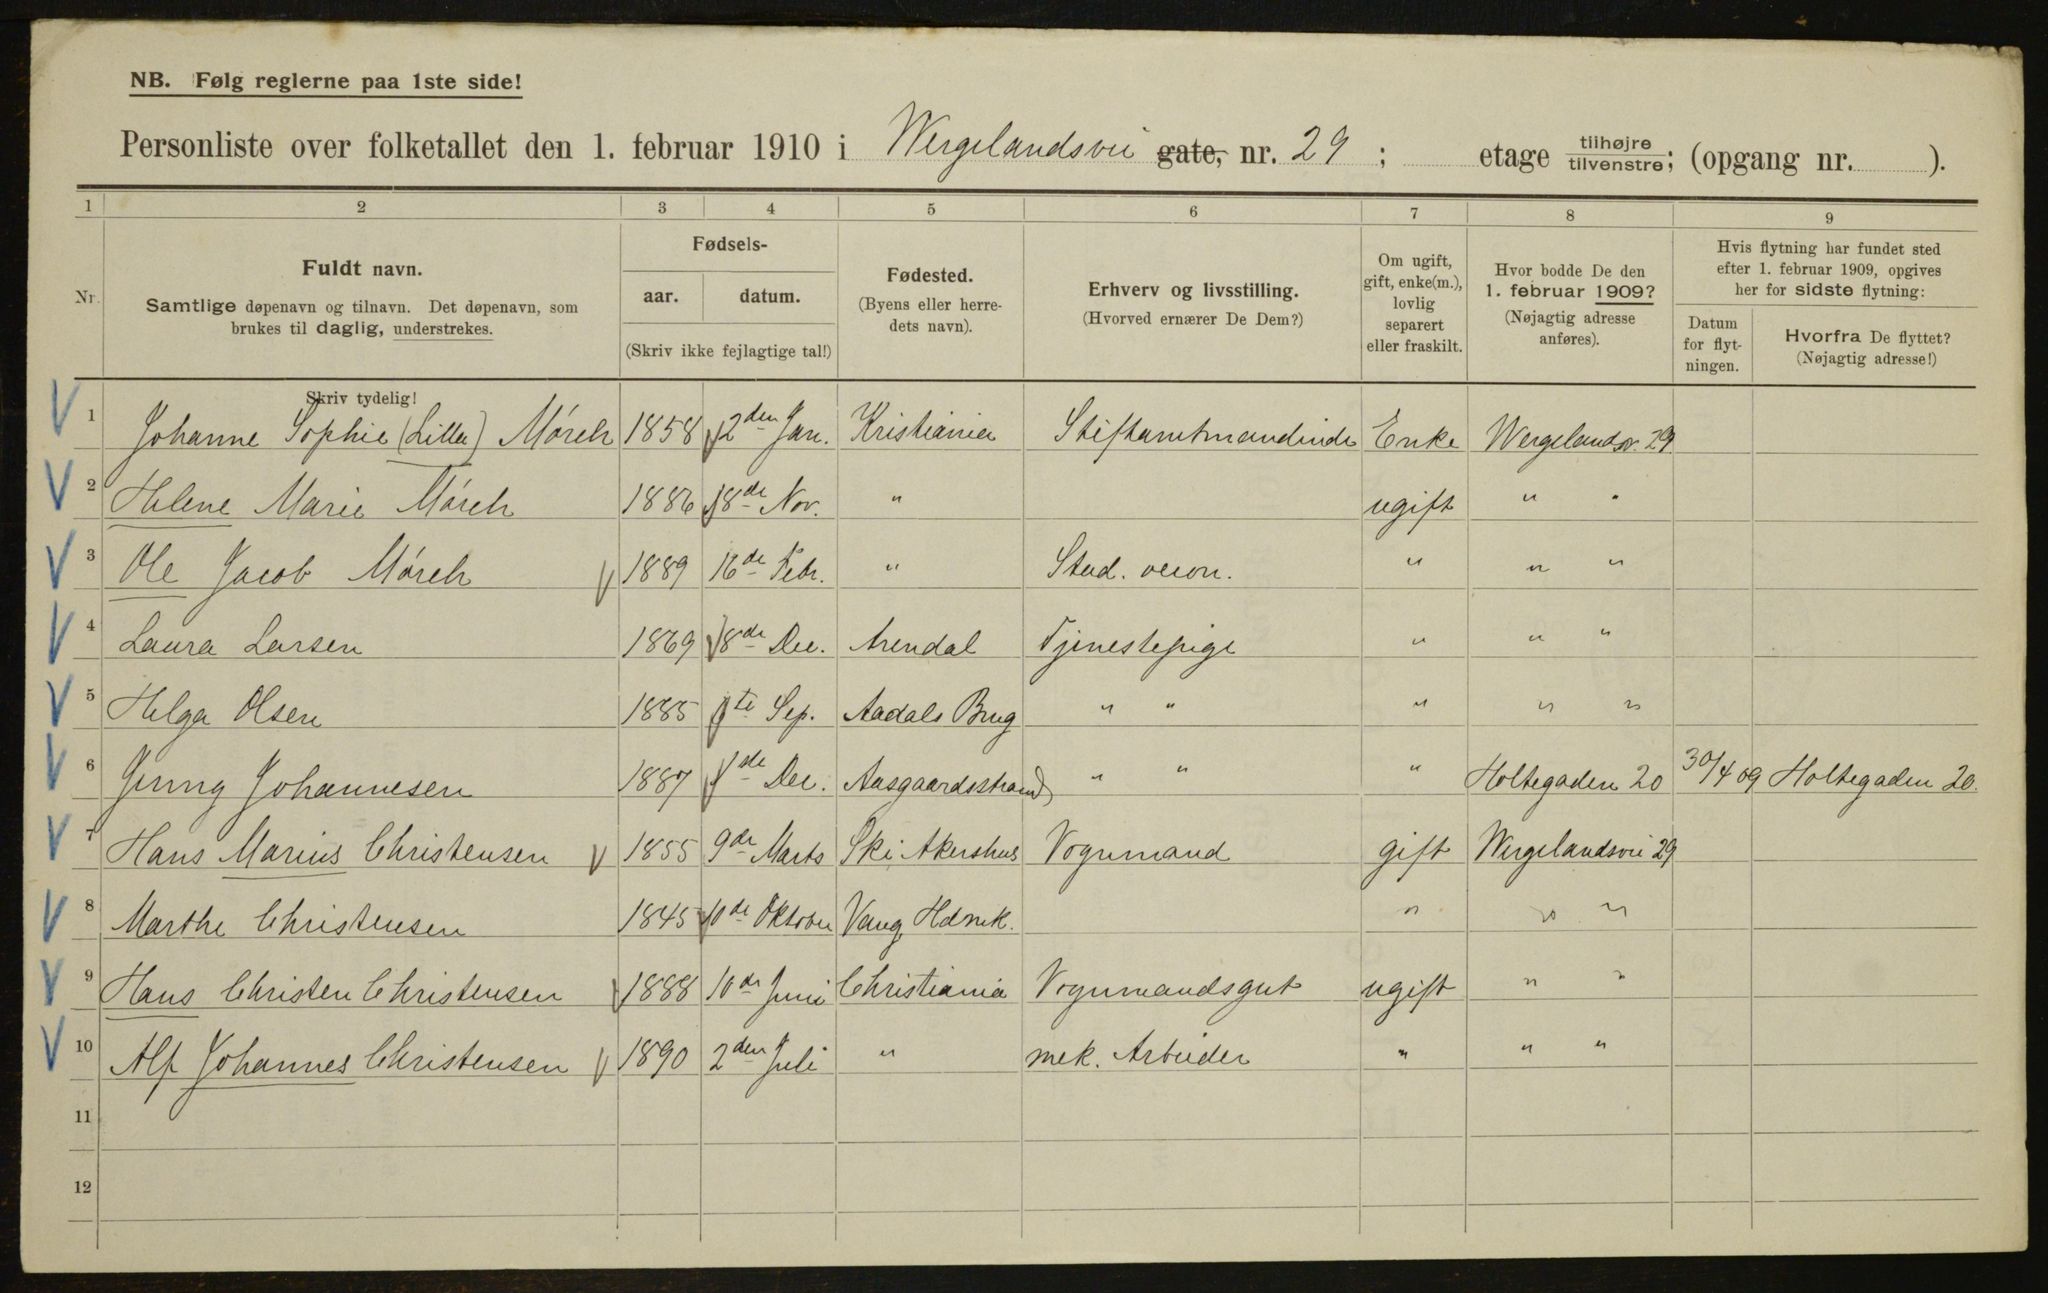 NB. Følg reglerne paa 1ste side!
Personliste over folketallet den 1. februar 1910 i Wergelandsvei gate, nr. 29 ; etage tilhøjre tilvenstre; (opgang nr. ).
1 2 3 4 5 6 7 8 9
Nr. Fuldt navn. Samtlige døpenavn og tilnavn. Det døpenavn, som brukes til daglig, understrekes.
Fødsels- aar. datum. (Skriv ikke fejlagtige tal!)
Fødested. (Byens eller herredets navn).
Erhverv og livsstilling. (Hvorved ernærer De Dem?)
Om ugift, gift, enke(m.), lovlig separert eller fraskilt.
Hvor bodde De den 1. februar 1909? (Nøjagtig adresse anføres).
Hvis flytning har fundet sted efter 1. februar 1909, opgives her for sidste flytning:
Datum for flytningen. Hvorfra De flyttet? (Nøjagtig adresse!)
Skriv tydelig!
1 Johanne Sophie (Lilla) Mórch 1858 2den Jan. Kristiania Stiftamtmandinde Enke Wergelandsv. 29
2 Helene Marie Mórch 1886 18de Nov. " ugift " "
3 Ole Jacob Mórch 1889 16de Febr. " Stud. oecon. " " "
4 Laura Larsen 1869 8de Dec. Arendal Tjenestepige " " "
5 Helga Olsen 1885 1ste Sep. Aadals Brug " " " " "
6 Jenny Johannesen 1887 1de Dec. Aasgaardsstrand " " " Holtegaden 20 30/4 09 Holtegaden 20.
7 Hans Marius Christensen 1855 9de Marts Ski Akershus Vognmand gift Wergelandsvei 29
8 Marthe Christensen 1845 10de Oktober Vang, Hdmrk. " " "
9 Hans Christen Christensen 1888 10de Juni Christiania Vognmandsgut ugift " "
10 Alf Johannes Christensen 1890 2den Juli " mek. Arbeider " " "
11
12